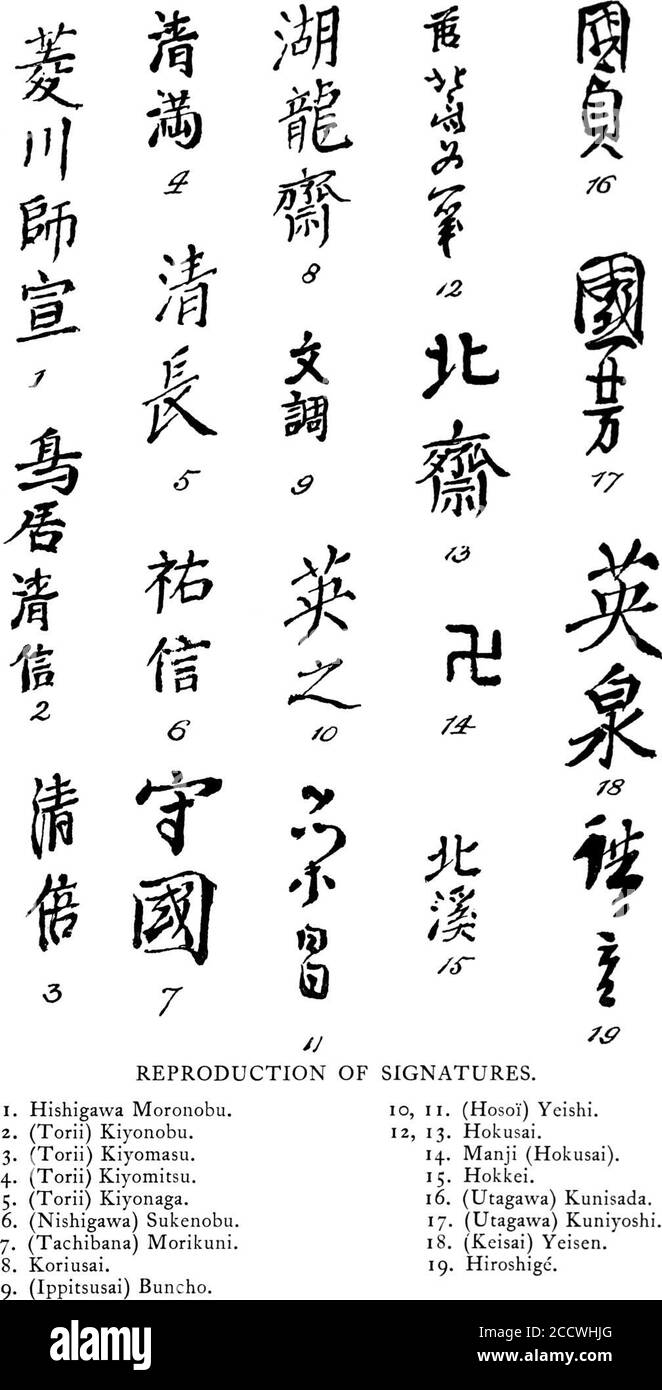 菱川師宣
1
鳥居清信
2
清倍
3
清満
4
清長
5
祐信
6
守國
7
湖龍齋
8
文調
9
英之
10
11
12
北齋
13
卍
14
北溪
15
國貞
16
國芳
17
英泉
18
19
REPRODUCTION OF SIGNATURES.
1. Hishigawa Moronobu.
2. (Torii) Kiyonobu.
3. (Torii) Kiyomasu.
4. (Torii) Kiyomitsu.
5. (Torii) Kiyonaga.
6. (Nishigawa) Sukenobu.
7. (Tachibana) Morikuni.
8. Koriusai.
9. (Ippitsusai) Buncho.
10, 11. (Hosoï) Yeishi.
12, 13. Hokusai.
14. Manji (Hokusai).
15. Hokkei.
16. (Utagawa) Kunisada.
17. (Utagawa) Kuniyoshi.
18. (Keisai) Yeisen.
19. Hiroshigé.
alamy
Image ID: 2CCWHJG
www.alamy.com